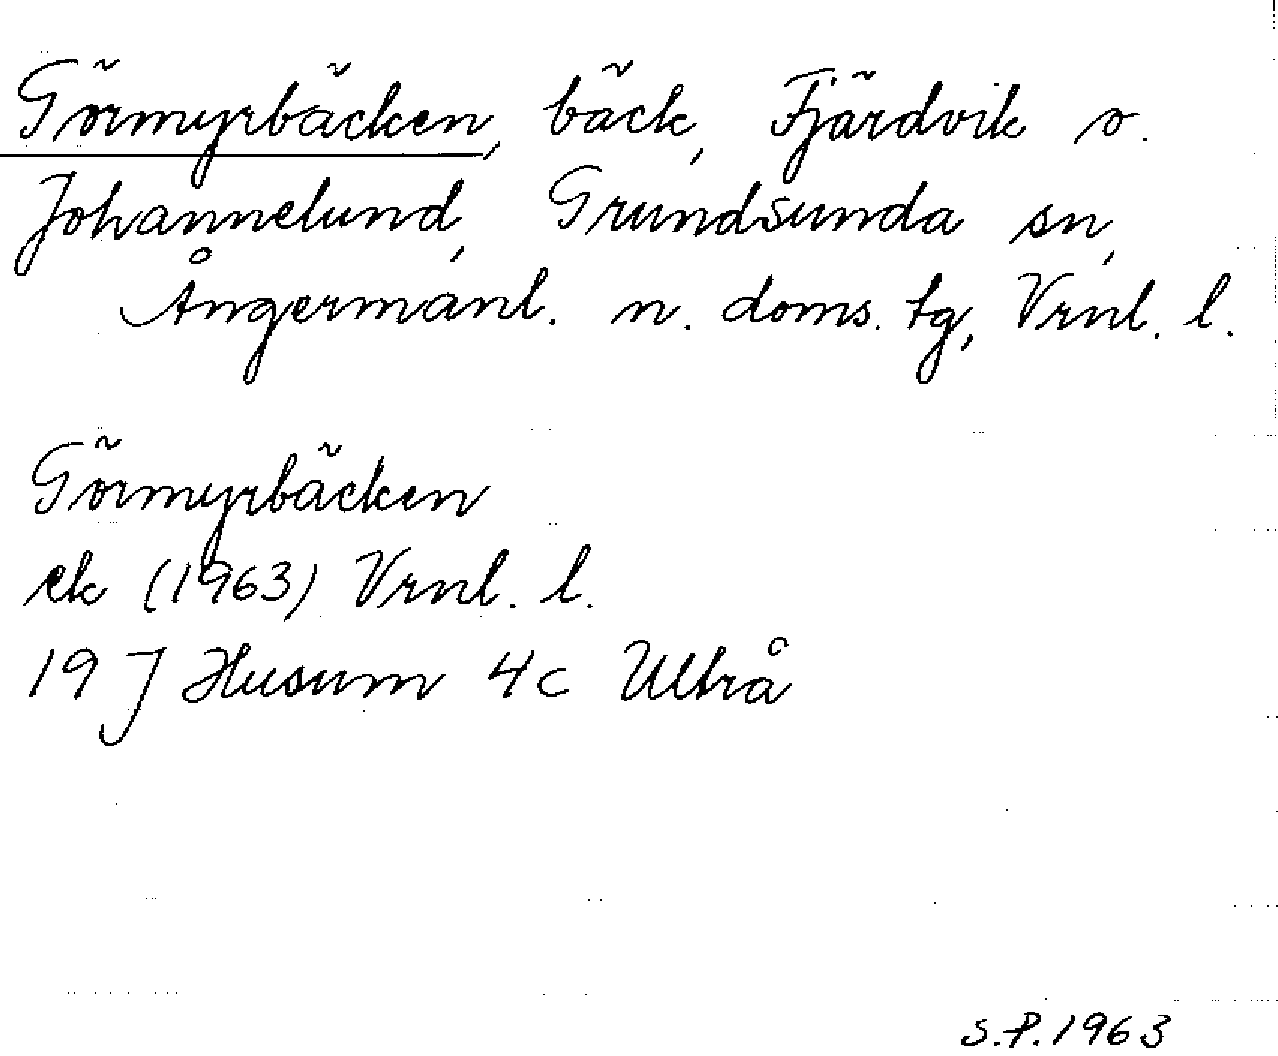 Görmyrbäcken, bäck, Fjärdvik o.
Johannelund, Grundsunda sn,
Ångermanl. n. doms. tg, Vrnl. l.
Görmyrbäcken
ek (1963) Vrnl. l.
19 J Husum 4c Ultrå
S.P.1963